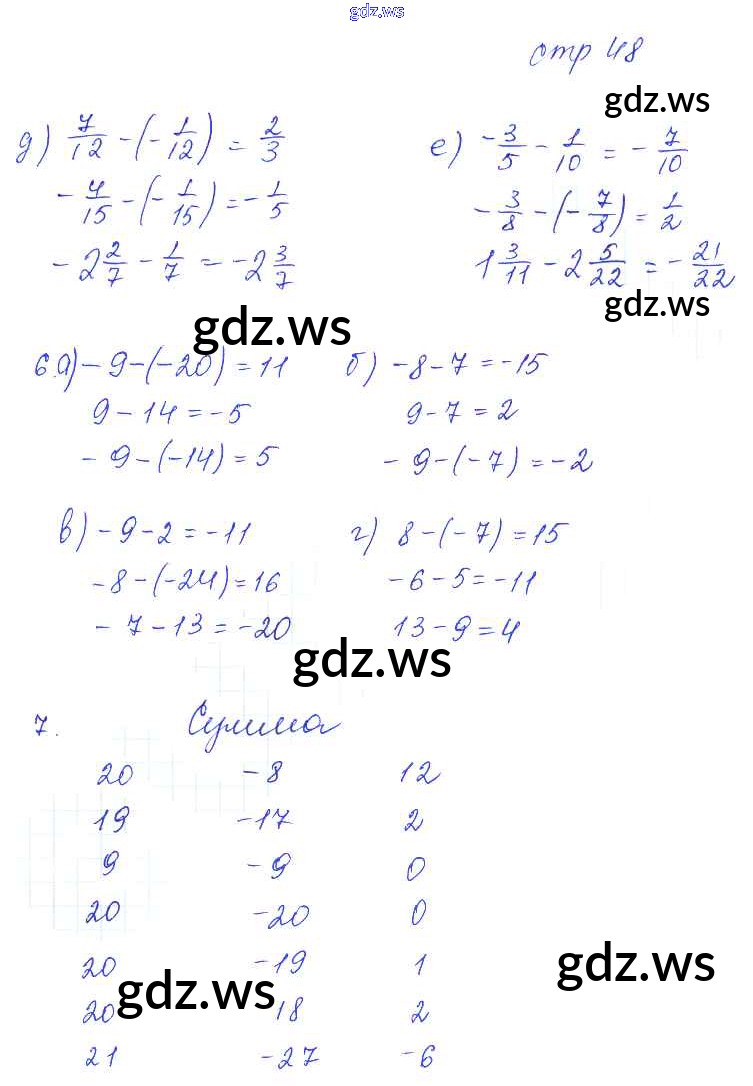 gdz.ws
стр 48
gdz.ws
д) 7/12 - (-1/12) = 2/3 е) -3/5 - 1/10 = -7/10
-4/15 - (-1/15) = -1/5 -3/8 - (-7/8) = 1/2
-2 2/7 - 1/7 = -2 3/7 1 3/11 - 2 5/22 = -21/22
gdz.ws gdz.ws
6.а) -9-(-20) = 11 б) -8-7 = -15
9-14 = -5 9-7 = 2
-9-(-14) = 5 -9-(-7) = -2
в) -9-2 = -11 г) 8-(-7) = 15
-8-(-24) = 16 -6-5 = -11
-7-13 = -20 13-9 = 4
gdz.ws
7. Сумма
20 -8 12
19 -17 2
9 -9 0
20 -20 0
20 -19 1
gdz.ws gdz.ws
20 18 2
21 -27 -6